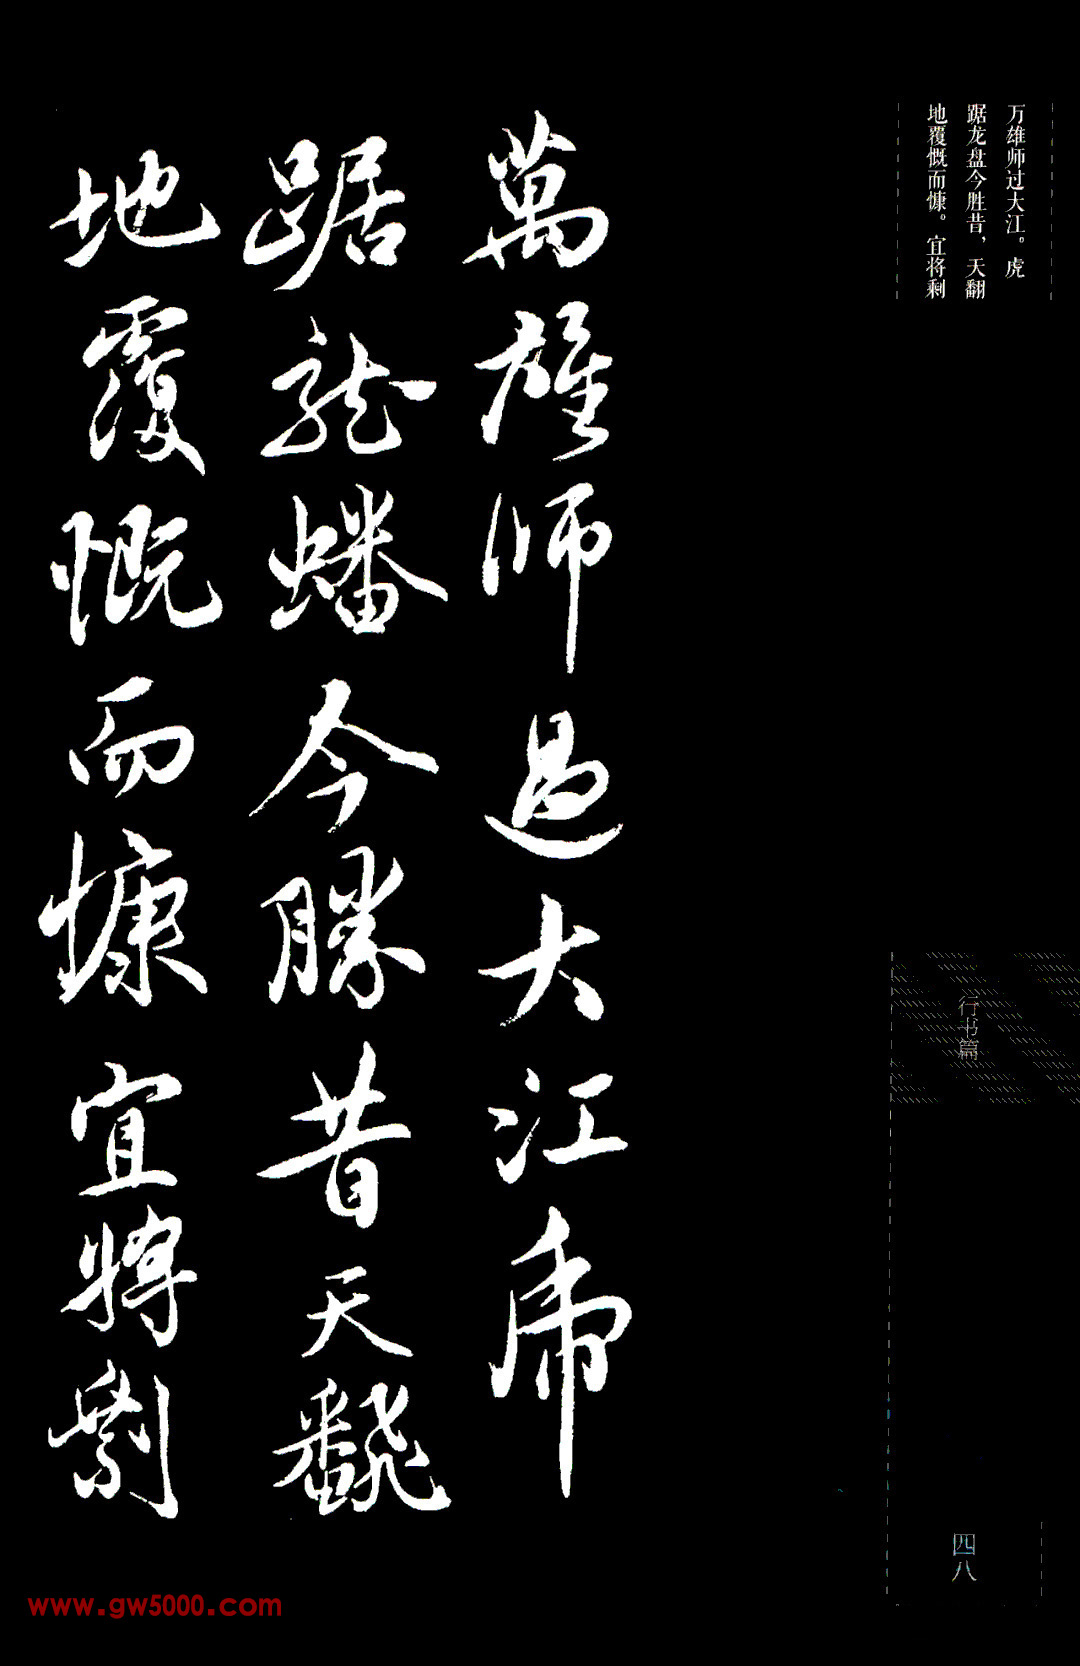 万雄师过大江。虎
踞龙盘今胜昔，天翻
地覆慨而慷。宜将剩
萬雄师过大江虎
踞龙蟠今勝昔天飜
地覆慨而慷宜將剩
行书篇
四八
www.gw5000.com